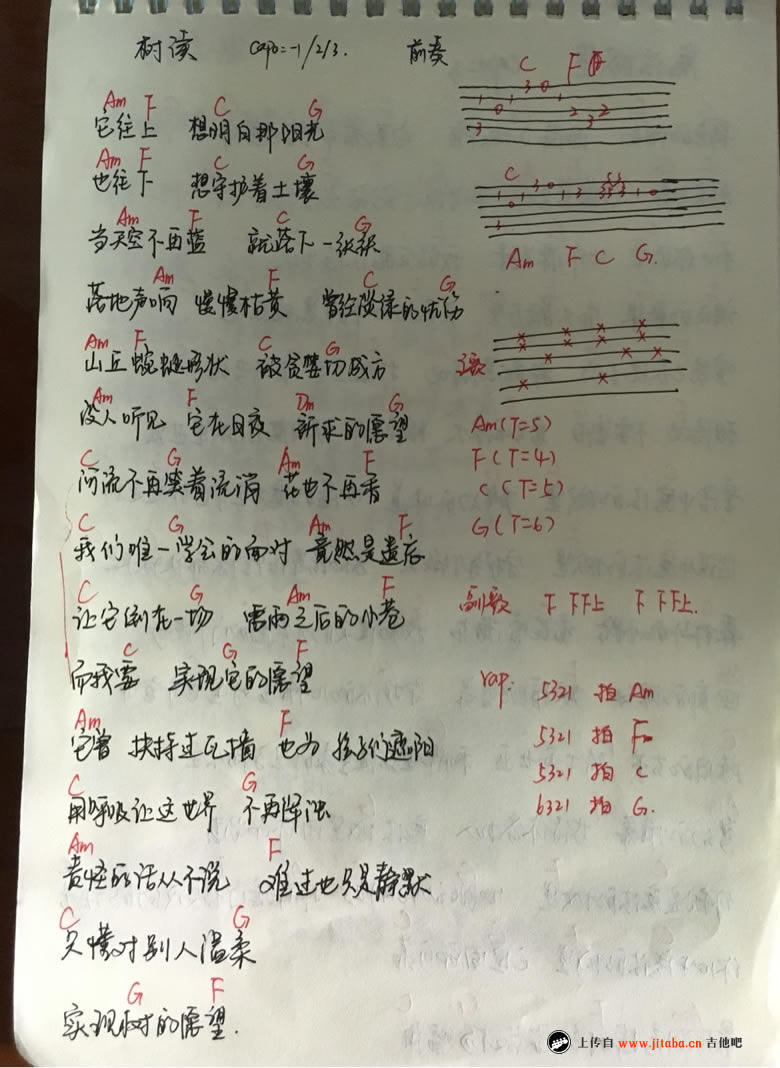 树读 capo=-1/2/3. 前奏
C F
Am F C G
它往上 想明白那阳光
Am F C G
也往下 想守护着土壤
C
Am F C G
当天空不再蓝 就落下一张张
Am F C G.
Am F C G
落地声响 慢慢枯黄 曾经淡绿的忧伤
Am F C G
山丘蜿蜒形状 被贪婪切成方
主歌
Am F Dm G
没人听见 它在日夜 祈求的愿望
Am (T=5)
F (T=4)
C (T=5)
G (T=6)
C G Am F
河流不再笑着流淌 花也不再香
C G Am F
我们唯一学会的面对 竟然是遗忘
C G Am F
让它倒在一场 雷雨之后的小巷
副歌 下 下下上 下 下下上.
C G F
而我要 实现它的愿望
rap: 5321 拍 Am
5321 拍 F
5321 拍 C
6321 拍 G.
Am F
它曾 扶持过瓦墙 也为 孩子们遮阳
C G
用呼吸让这世界 不再浑浊
Am F
责怪的话从不说 难过也只是静默
C G
只懂对别人温柔
G F
实现树的愿望.
上传自 www.jitaba.cn 吉他吧